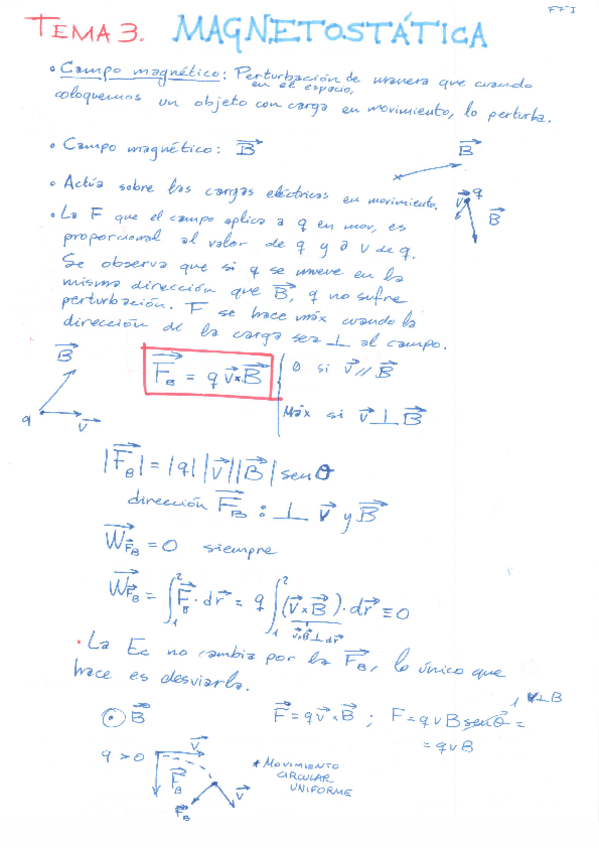 FFI
TEMA 3. MAGNETOSTÁTICA
• Campo magnético: Perturbación de manera que cuando
en el espacio,
coloquemos un objeto con carga en movimiento, lo perturba.
• Campo magnético: B⃗
B⃗
• Actúa sobre las cargas eléctricas en movimiento.
v⃗ q
B⃗
• La F que el campo aplica a q en mov, es
proporcional al valor de q y a v de q.
Se observa que si q se mueve en la
misma dirección que B⃗, q no sufre
perturbación. F se hace máx cuando la
dirección de la carga sea ⊥ al campo.
B⃗
q v⃗
F⃗_B = q v⃗ × B⃗
0 si v⃗ // B⃗
Máx si v⃗ ⊥ B⃗
|F⃗_B| = |q| |v⃗| |B⃗| sen θ
dirección F⃗_B : ⊥ v⃗ y B⃗
W⃗_F_B = 0 siempre
W⃗_F_B = ∫₁² F⃗_B · dr⃗ = q ∫₁² (v⃗ × B⃗) · dr⃗ ≡ 0
v⃗×B⃗ ⊥ dr⃗
• La Ec no cambia por la F⃗_B, lo único que
hace es desviarla.
⊙ B⃗
F⃗ = q v⃗ × B⃗ ; F = q v B sen θ =
1 v⊥B
= q v B
q > 0 v⃗
F⃗_B
F⃗_B v⃗
* MOVIMIENTO
CIRCULAR
UNIFORME